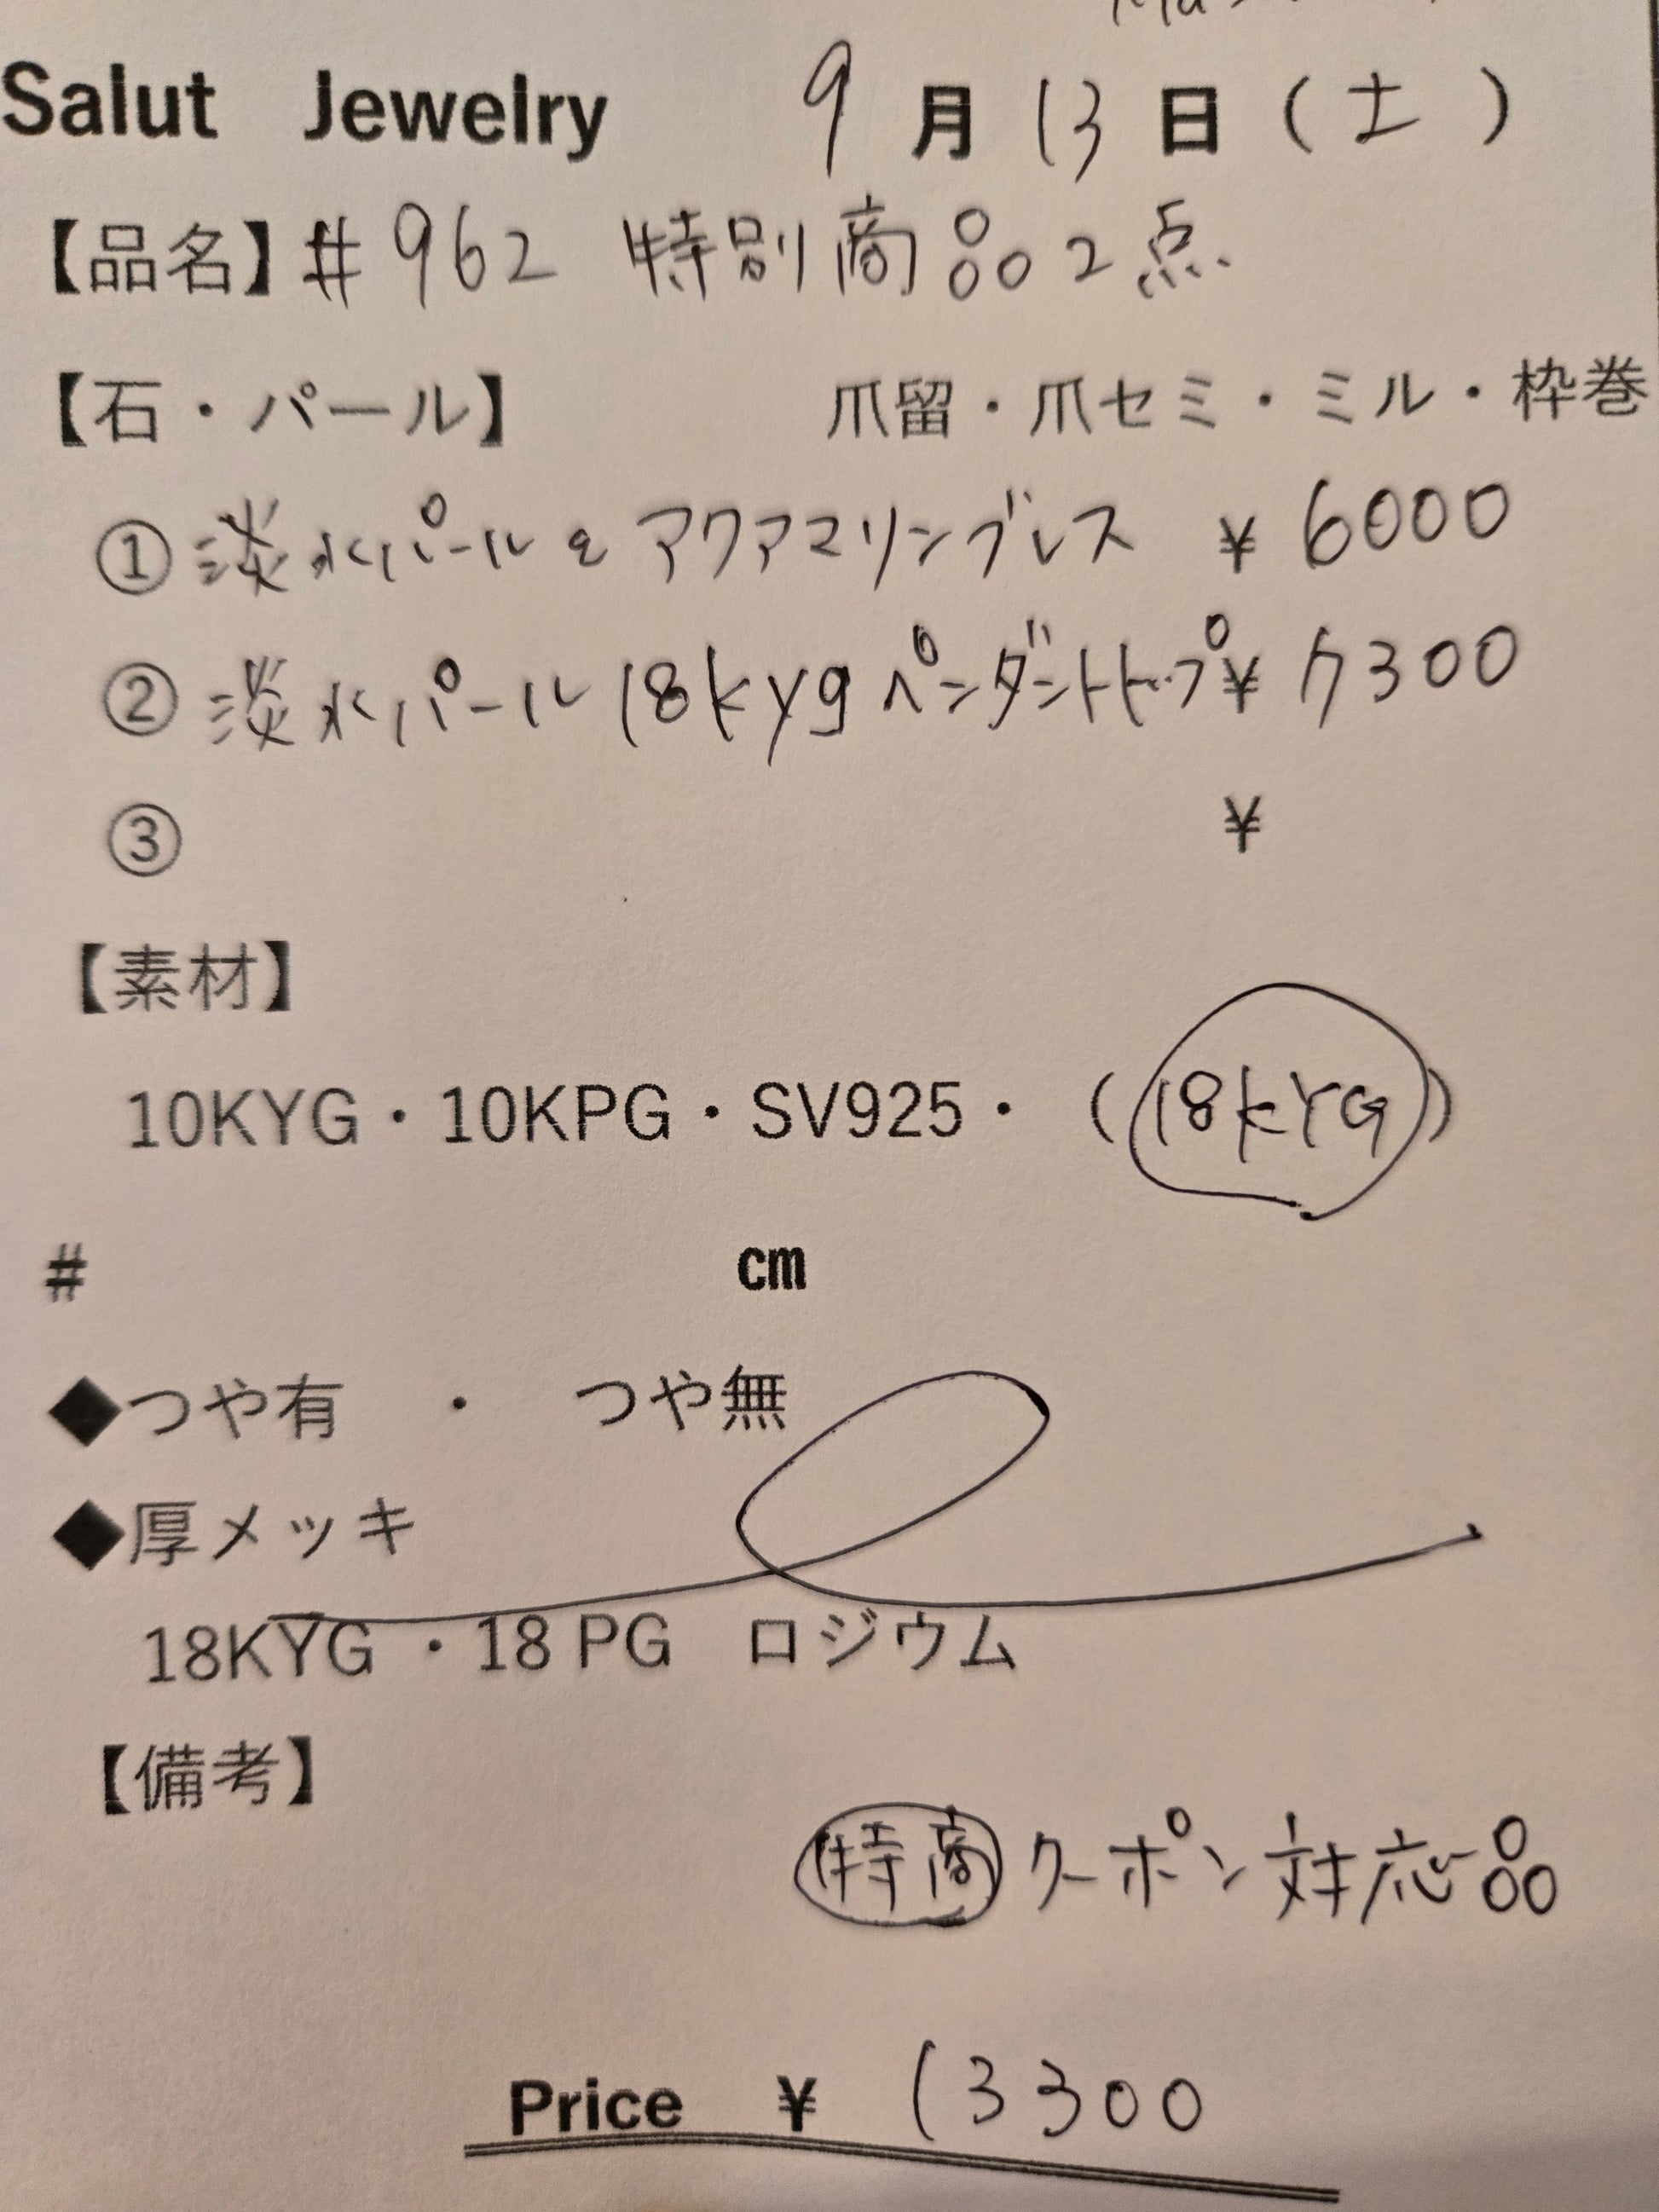 Salut Jewelry 9月13日(土)
【品名】#962 特別商品2点
【石・パール】 爪留・爪セミ・ミル・枠巻
①淡水パール&アクアマリンブレス ¥6000
②淡水パール18kygペンダントトップ¥7300
③ ¥
【素材】
10KYG・10KPG・SV925・(18kYG)
# cm
◆つや有 ・ つや無
◆厚メッキ
18KYG ・18 PG ロジウム
【備考】
特商 クーポン対応品
Price ¥ 13300